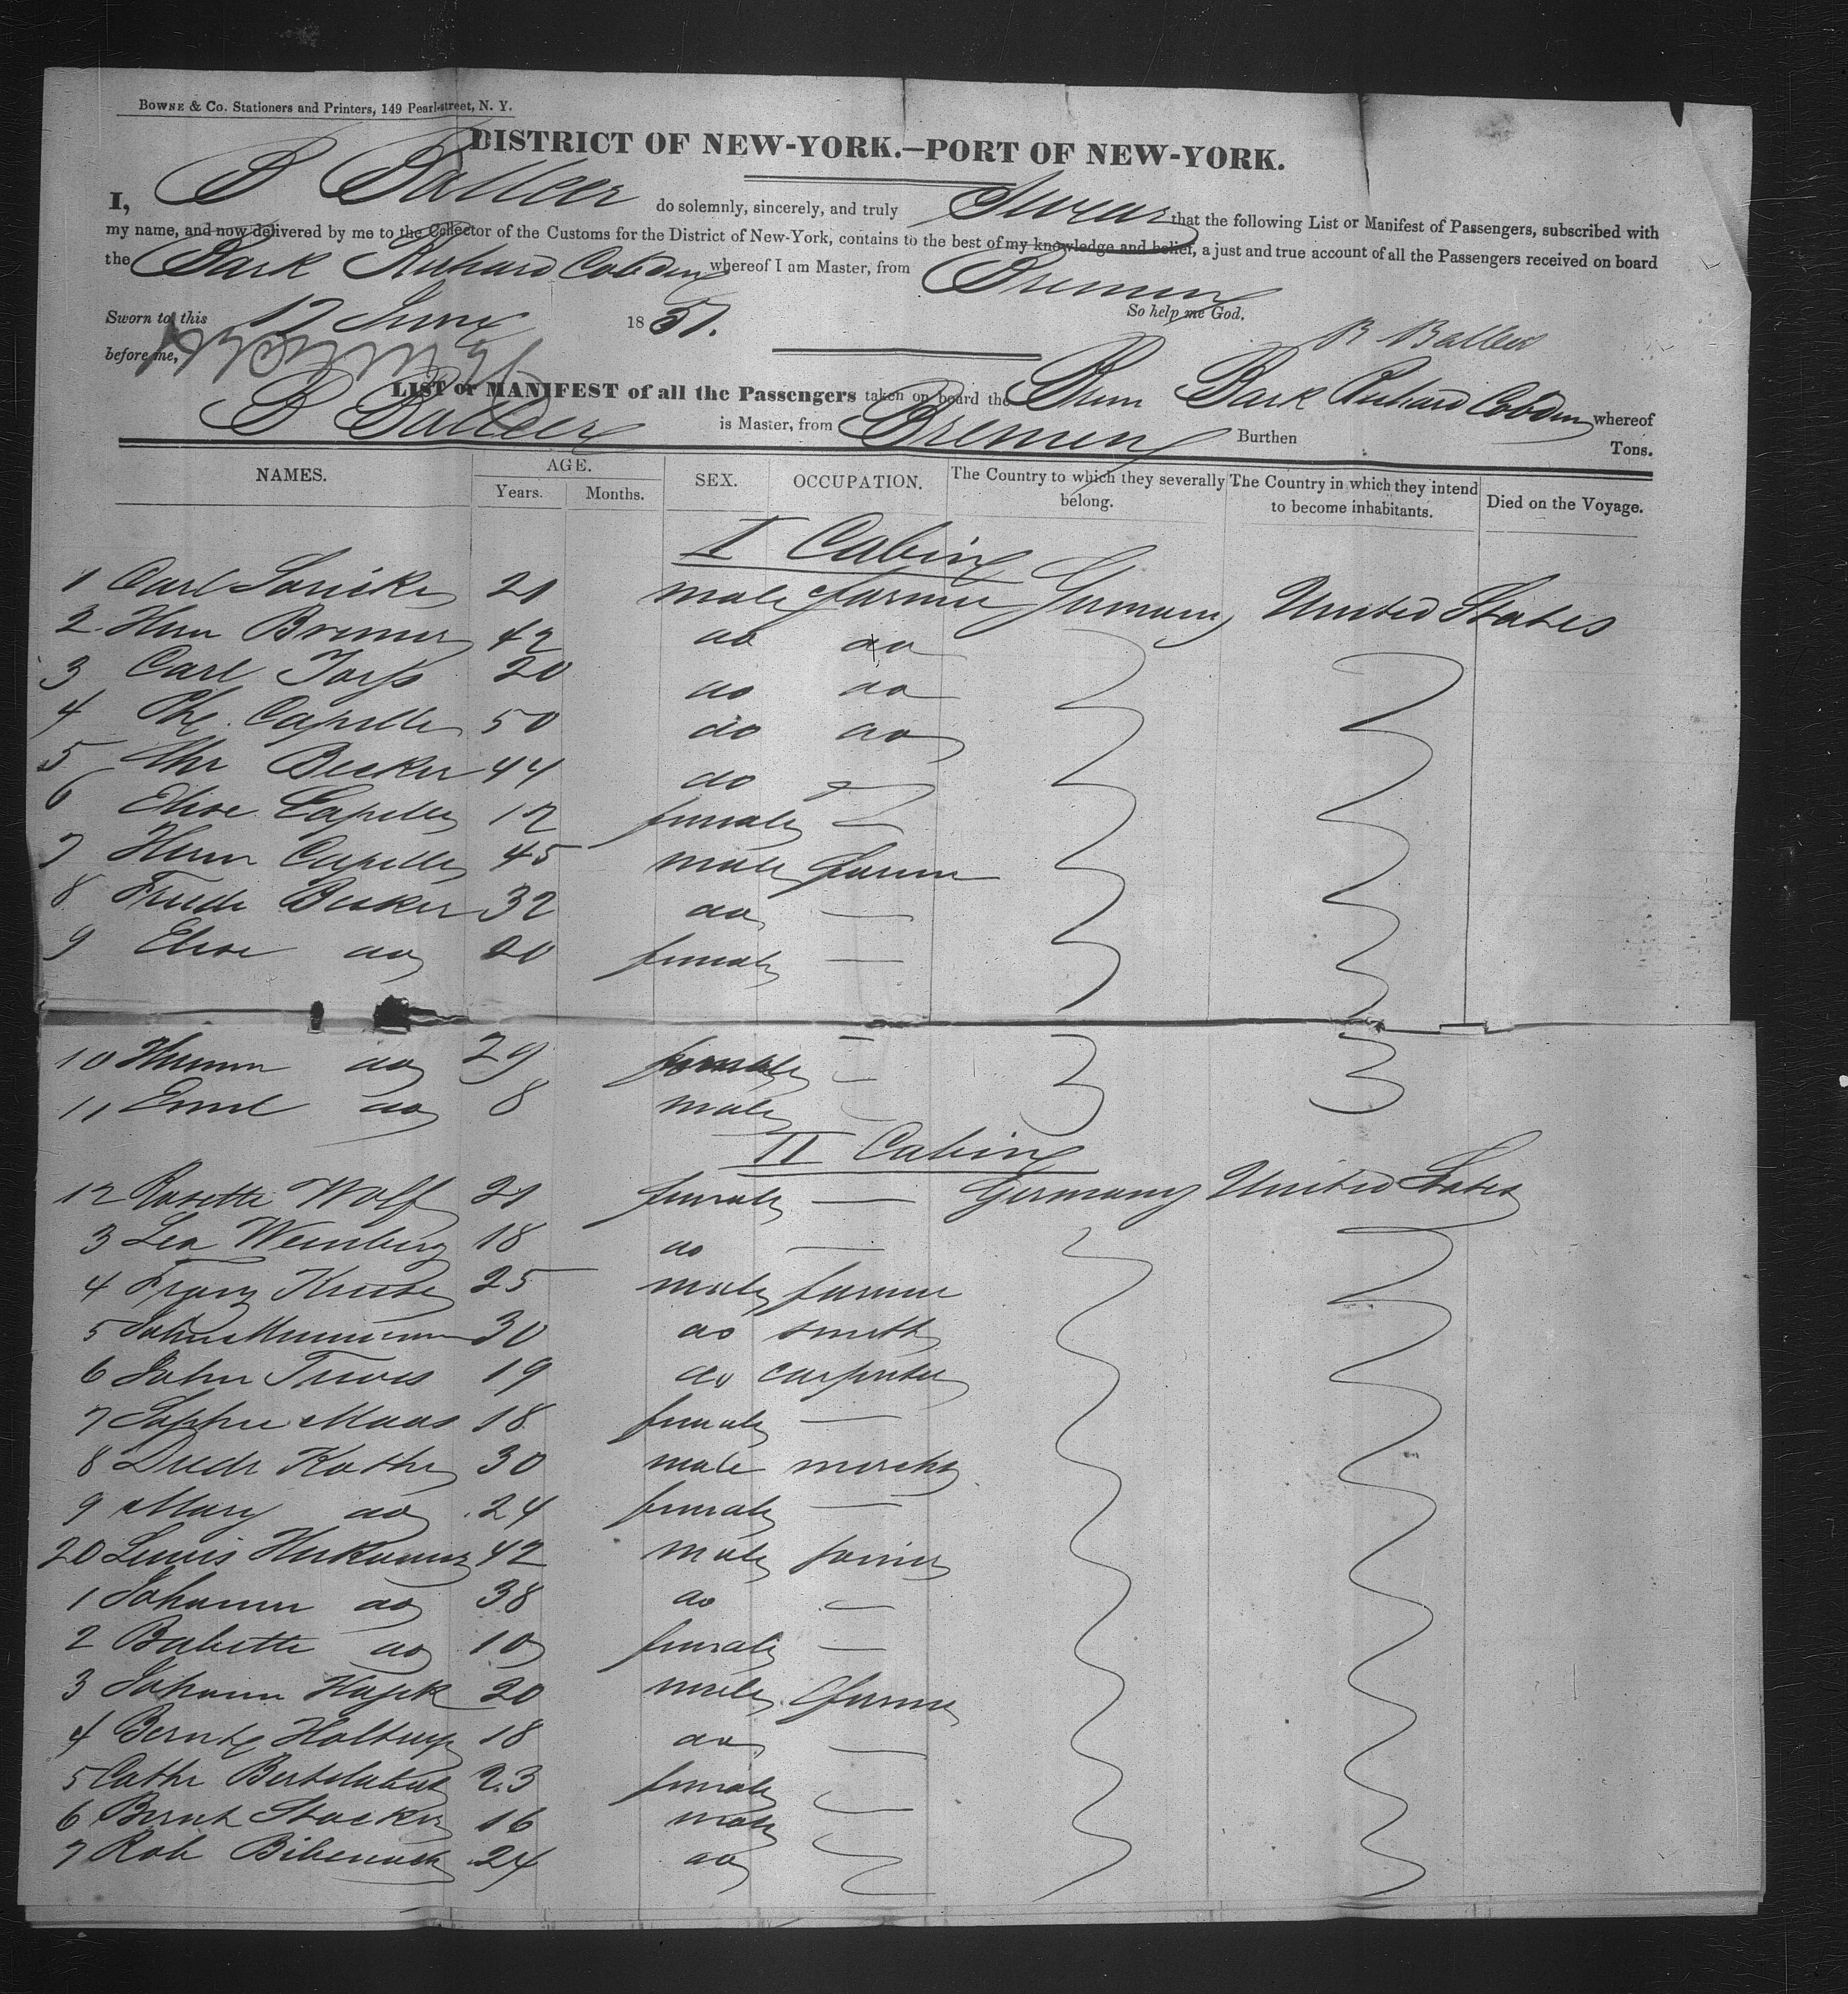 BOWNE & Co. Stationers and Printers, 149 Pearl-street, N. Y.
DISTRICT OF NEW-YORK.—PORT OF NEW-YORK.
I, B Balleer do solemnly, sincerely, and truly Swear that the following List or Manifest of Passengers, subscribed with
my name, and now delivered by me to the Collector of the Customs for the District of New-York, contains to the best of my knowledge and belief, a just and true account of all the Passengers received on board
the Bark Richard Cobden whereof I am Master, from Bremen
So help me God.
Sworn to this 12 June 1857.
before me,
B Balleer
LIST or MANIFEST of all the Passengers taken on board the Brem Bark Richard Cobden whereof
B Balleer is Master, from Bremen Burthen Tons.
NAMES. AGE. SEX. OCCUPATION. The Country to which they severally belong. The Country in which they intend to become inhabitants. Died on the Voyage.
Years. Months.
I Cabin
1 Carl 21 male farmer Germany United States
2 Herm Bremer 42 do do
3 Carl Torss 20 do do
4 Phe. Capelle 50 do do
5 Chr Becker 44 do
6 Elise Capelle 12 female
7 Herm Capelle 45 male farmer
8 Friedr Becker 32 do —
9 Elise do 20 female —
10 do 29 female
11 Emil do 8 male
II Cabin
12 Rosette Wolf 21 female — Germany United States
3 Lea Weinberg 18 do —
4 Franz Kruse 25 male farmer
5 30 do smith
6 John 19 do carpenter
7 Sophie Maas 18 female —
8 Diedr Kothe 30 male mercht
9 Mary do 24 female —
20 Lewis 42 male joiner
1 Johann do 38 do —
2 Babette do 10 female —
3 Johann 20 male farmer
4 Bernhd Holtrup 18 do —
5 Cathr 23 female
6 Bernh Stocker 16 male
7 Rob 24 do